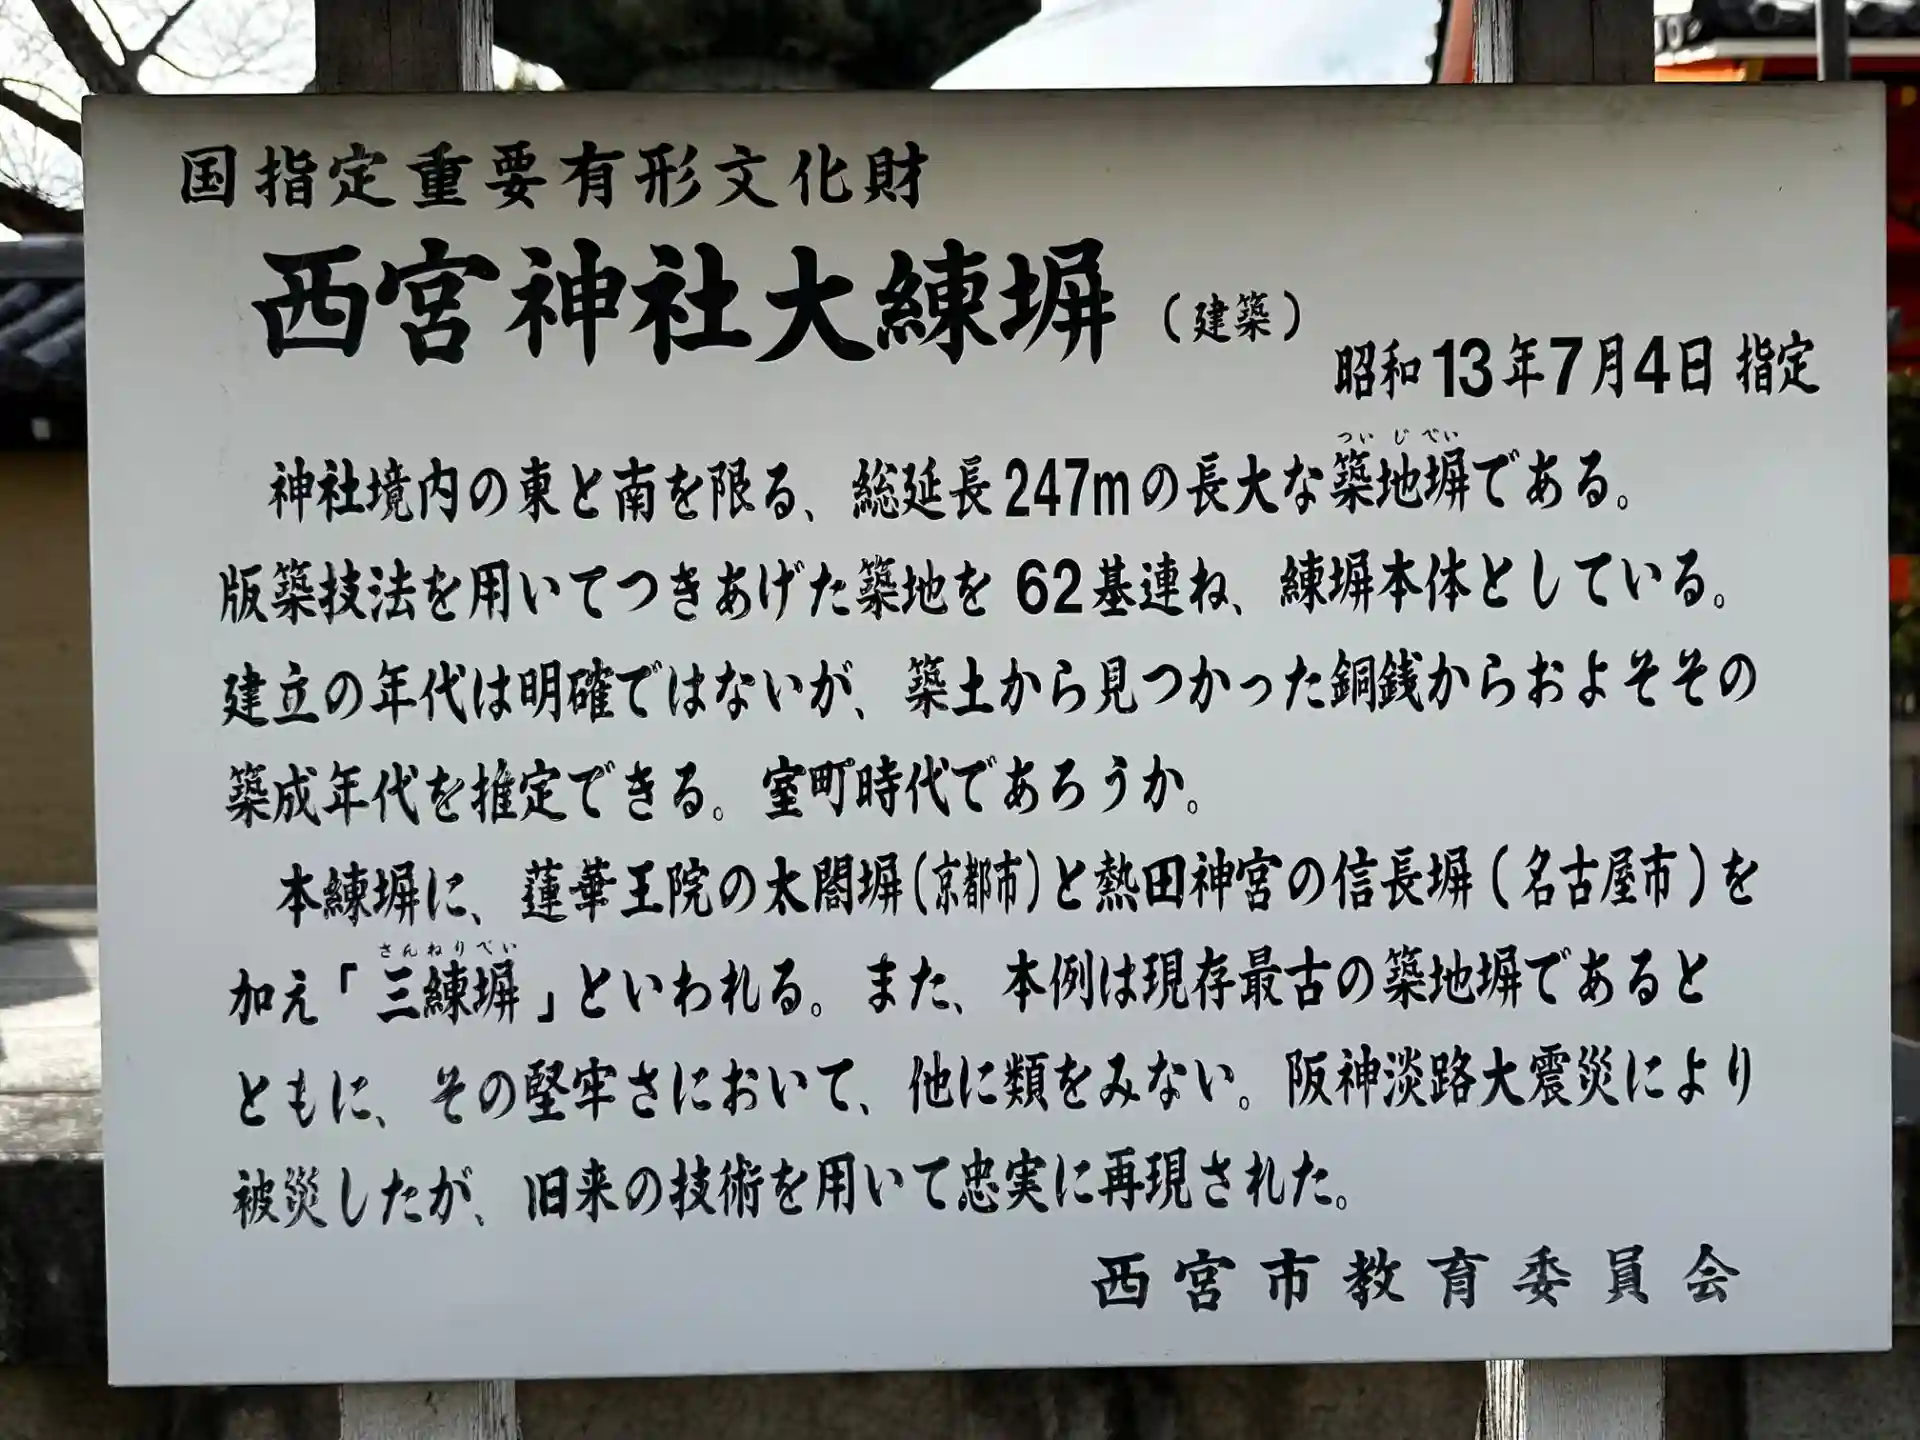 国指定重要有形文化財
西宮神社大練塀（建築）
昭和13年7月4日 指定
神社境内の東と南を限る、総延長247mの長大な築地塀である。
ついじべい
版築技法を用いてつきあげた築地を 62基連ね、練塀本体としている。
建立の年代は明確ではないが、築土から見つかった銅銭からおよそその
築成年代を推定できる。室町時代であろうか。
本練塀に、蓮華王院の太閤塀（京都市）と熱田神宮の信長塀（名古屋市）を
さんねりべい
加え「三練塀」といわれる。また、本例は現存最古の築地塀であると
ともに、その堅牢さにおいて、他に類をみない。阪神淡路大震災により
被災したが、旧来の技術を用いて忠実に再現された。
西宮市教育委員会